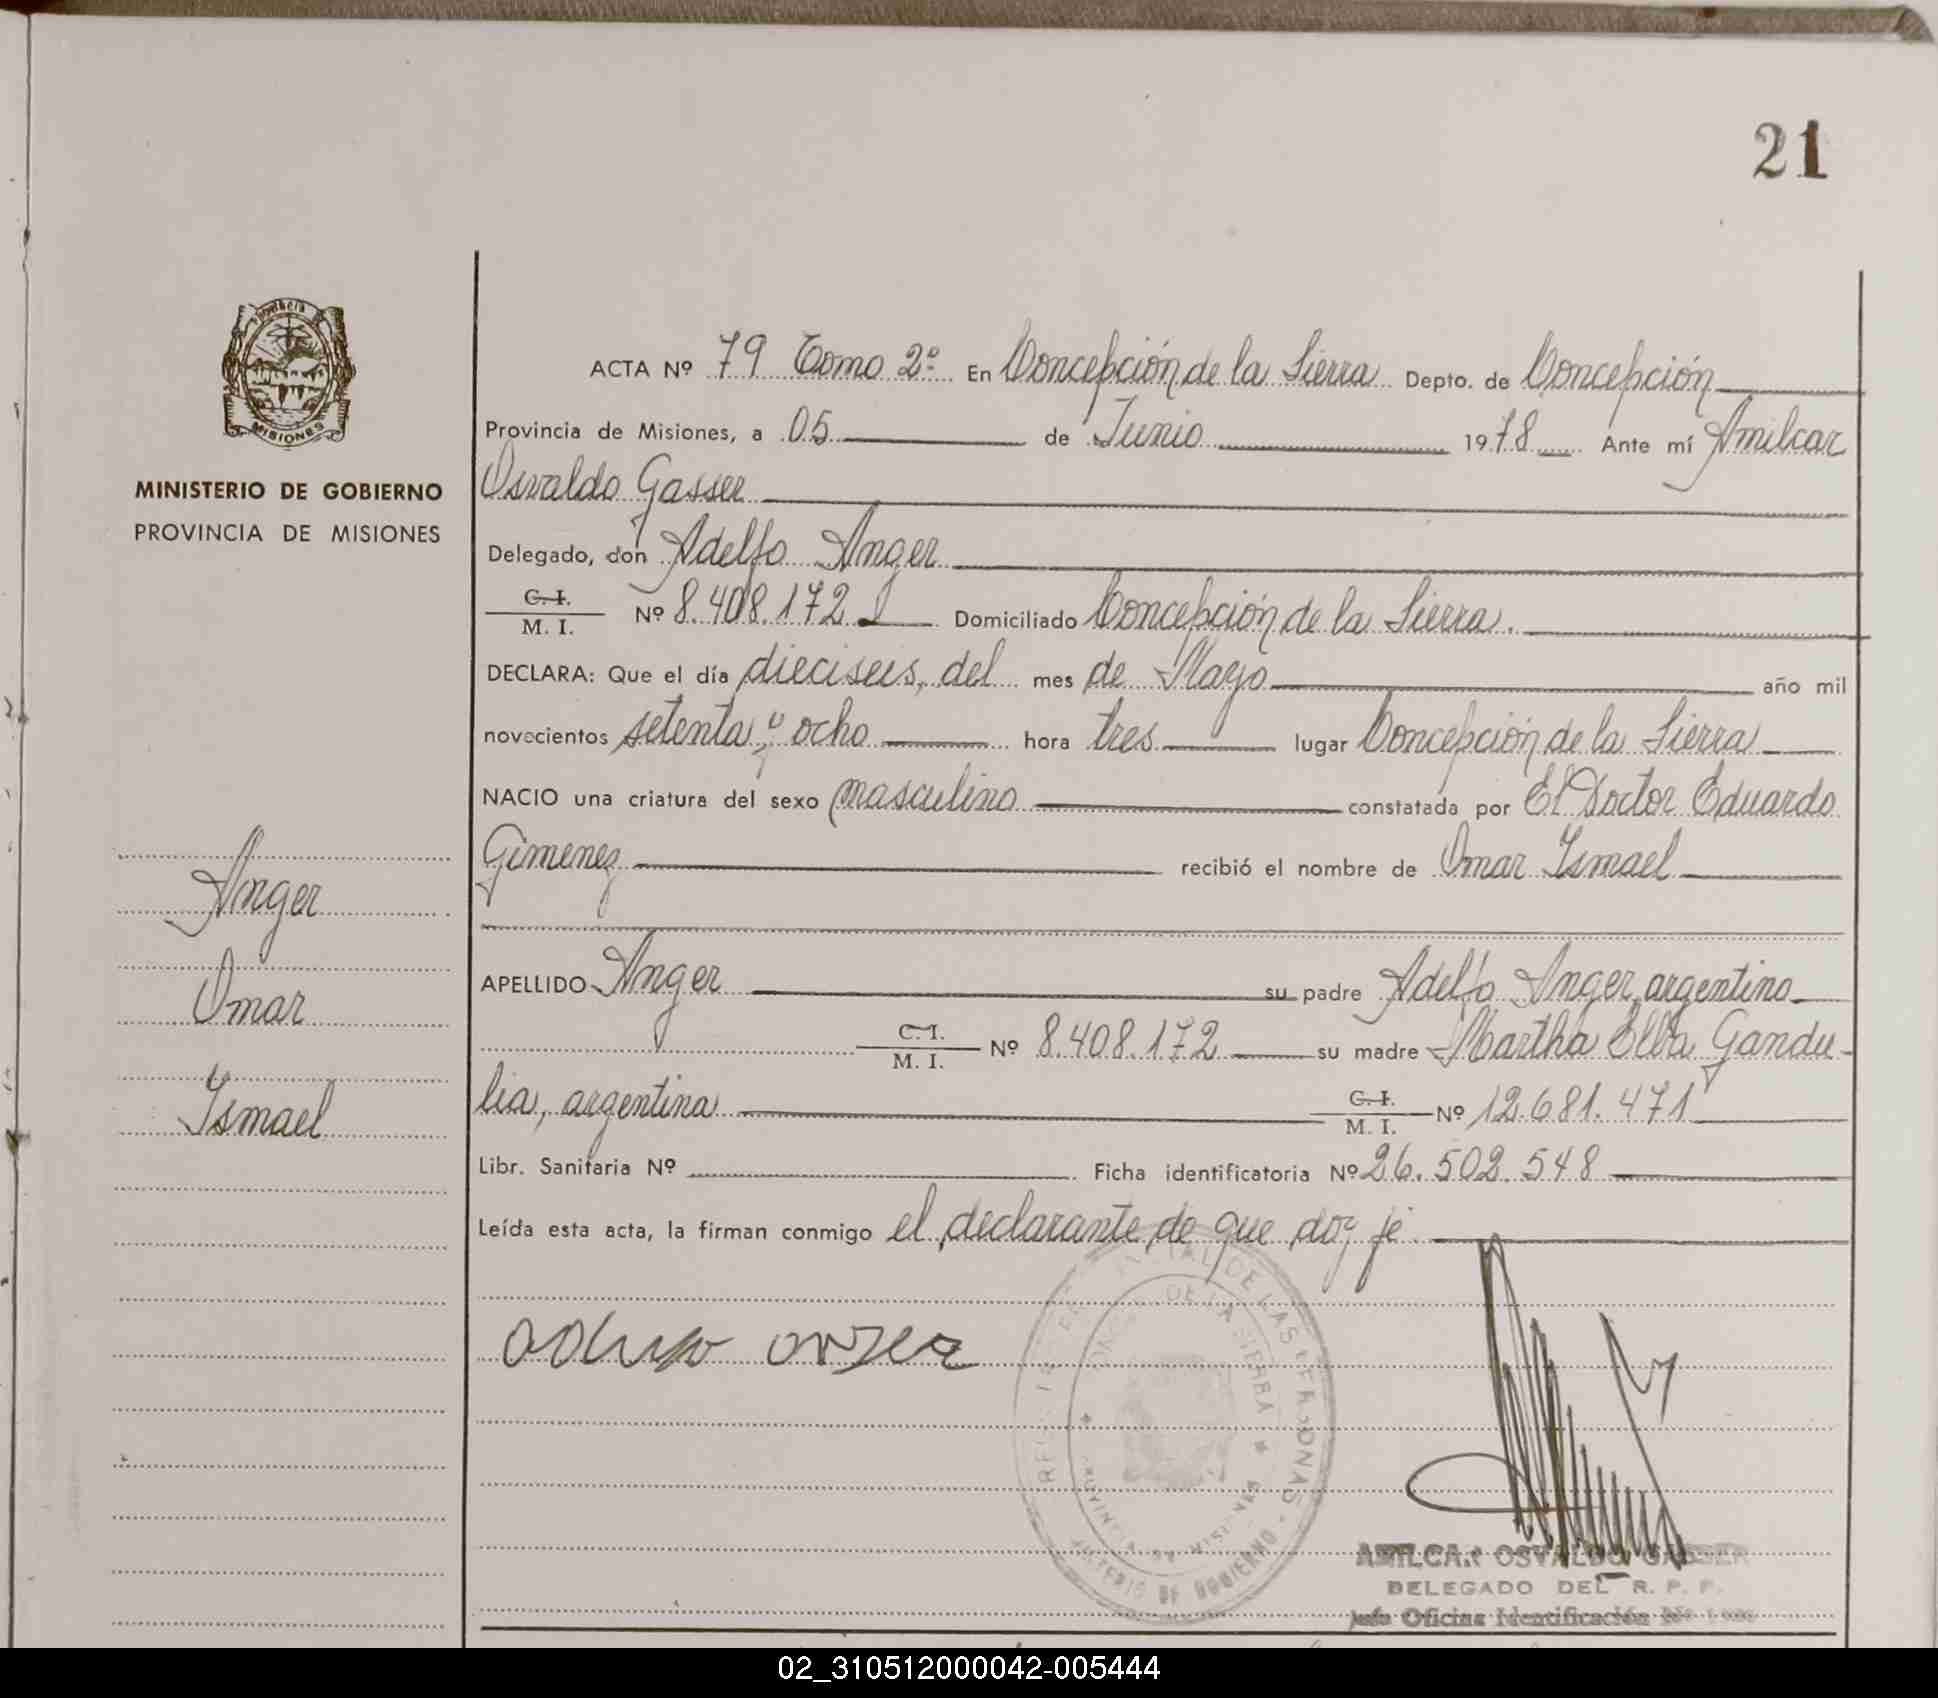 21
Provincia
MISIONES
MINISTERIO DE GOBIERNO
PROVINCIA DE MISIONES
Anger
Omar
Ismael
ACTA Nº 79 Tomo 2º En Concepción de la Sierra Depto. de Concepción
Provincia de Misiones, a 05 de Junio 1978 Ante mí Amilcar
Osvaldo Gasser
Delegado, don Adelfo Anger
C. I.
M. I. Nº 8.408.172 Domiciliado Concepción de la Sierra.
DECLARA: Que el día dieciseis, del mes de Mayo año mil
novecientos setenta y ocho hora tres lugar Concepción de la Sierra
NACIO una criatura del sexo masculino constatada por El Doctor Eduardo
Gimenez recibió el nombre de Omar Ismael
APELLIDO Anger su padre Adelfo Anger, argentino
C. I.
M. I. Nº 8.408.172 su madre Martha Elba Gandu-
lia, argentina C. I.
M. I. Nº 12.681.471
Libr. Sanitaria Nº Ficha identificatoria Nº 26.502.548
Leída esta acta, la firman conmigo el declarante de que doy fé.
DE LAS PERSONAS
DE LA SIERRA
PROVINCIA DE MISIONES
MINISTERIO DE GOBIERNO
AMILCAR OSVALDO GASSER
DELEGADO DEL R. P. P.
Jefe Oficina Identificación
02_310512000042-005444